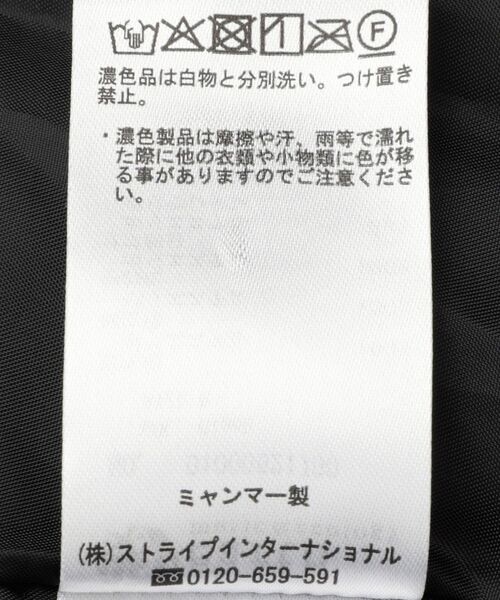 F
濃色品は白物と分別洗い。つけ置き
禁止。
・濃色製品は摩擦や汗、雨等で濡れ
た際に他の衣類や小物類に色が移
る事がありますのでご注意くださ
い。
ミャンマー製
(株)ストライプインターナショナル
0120-659-591